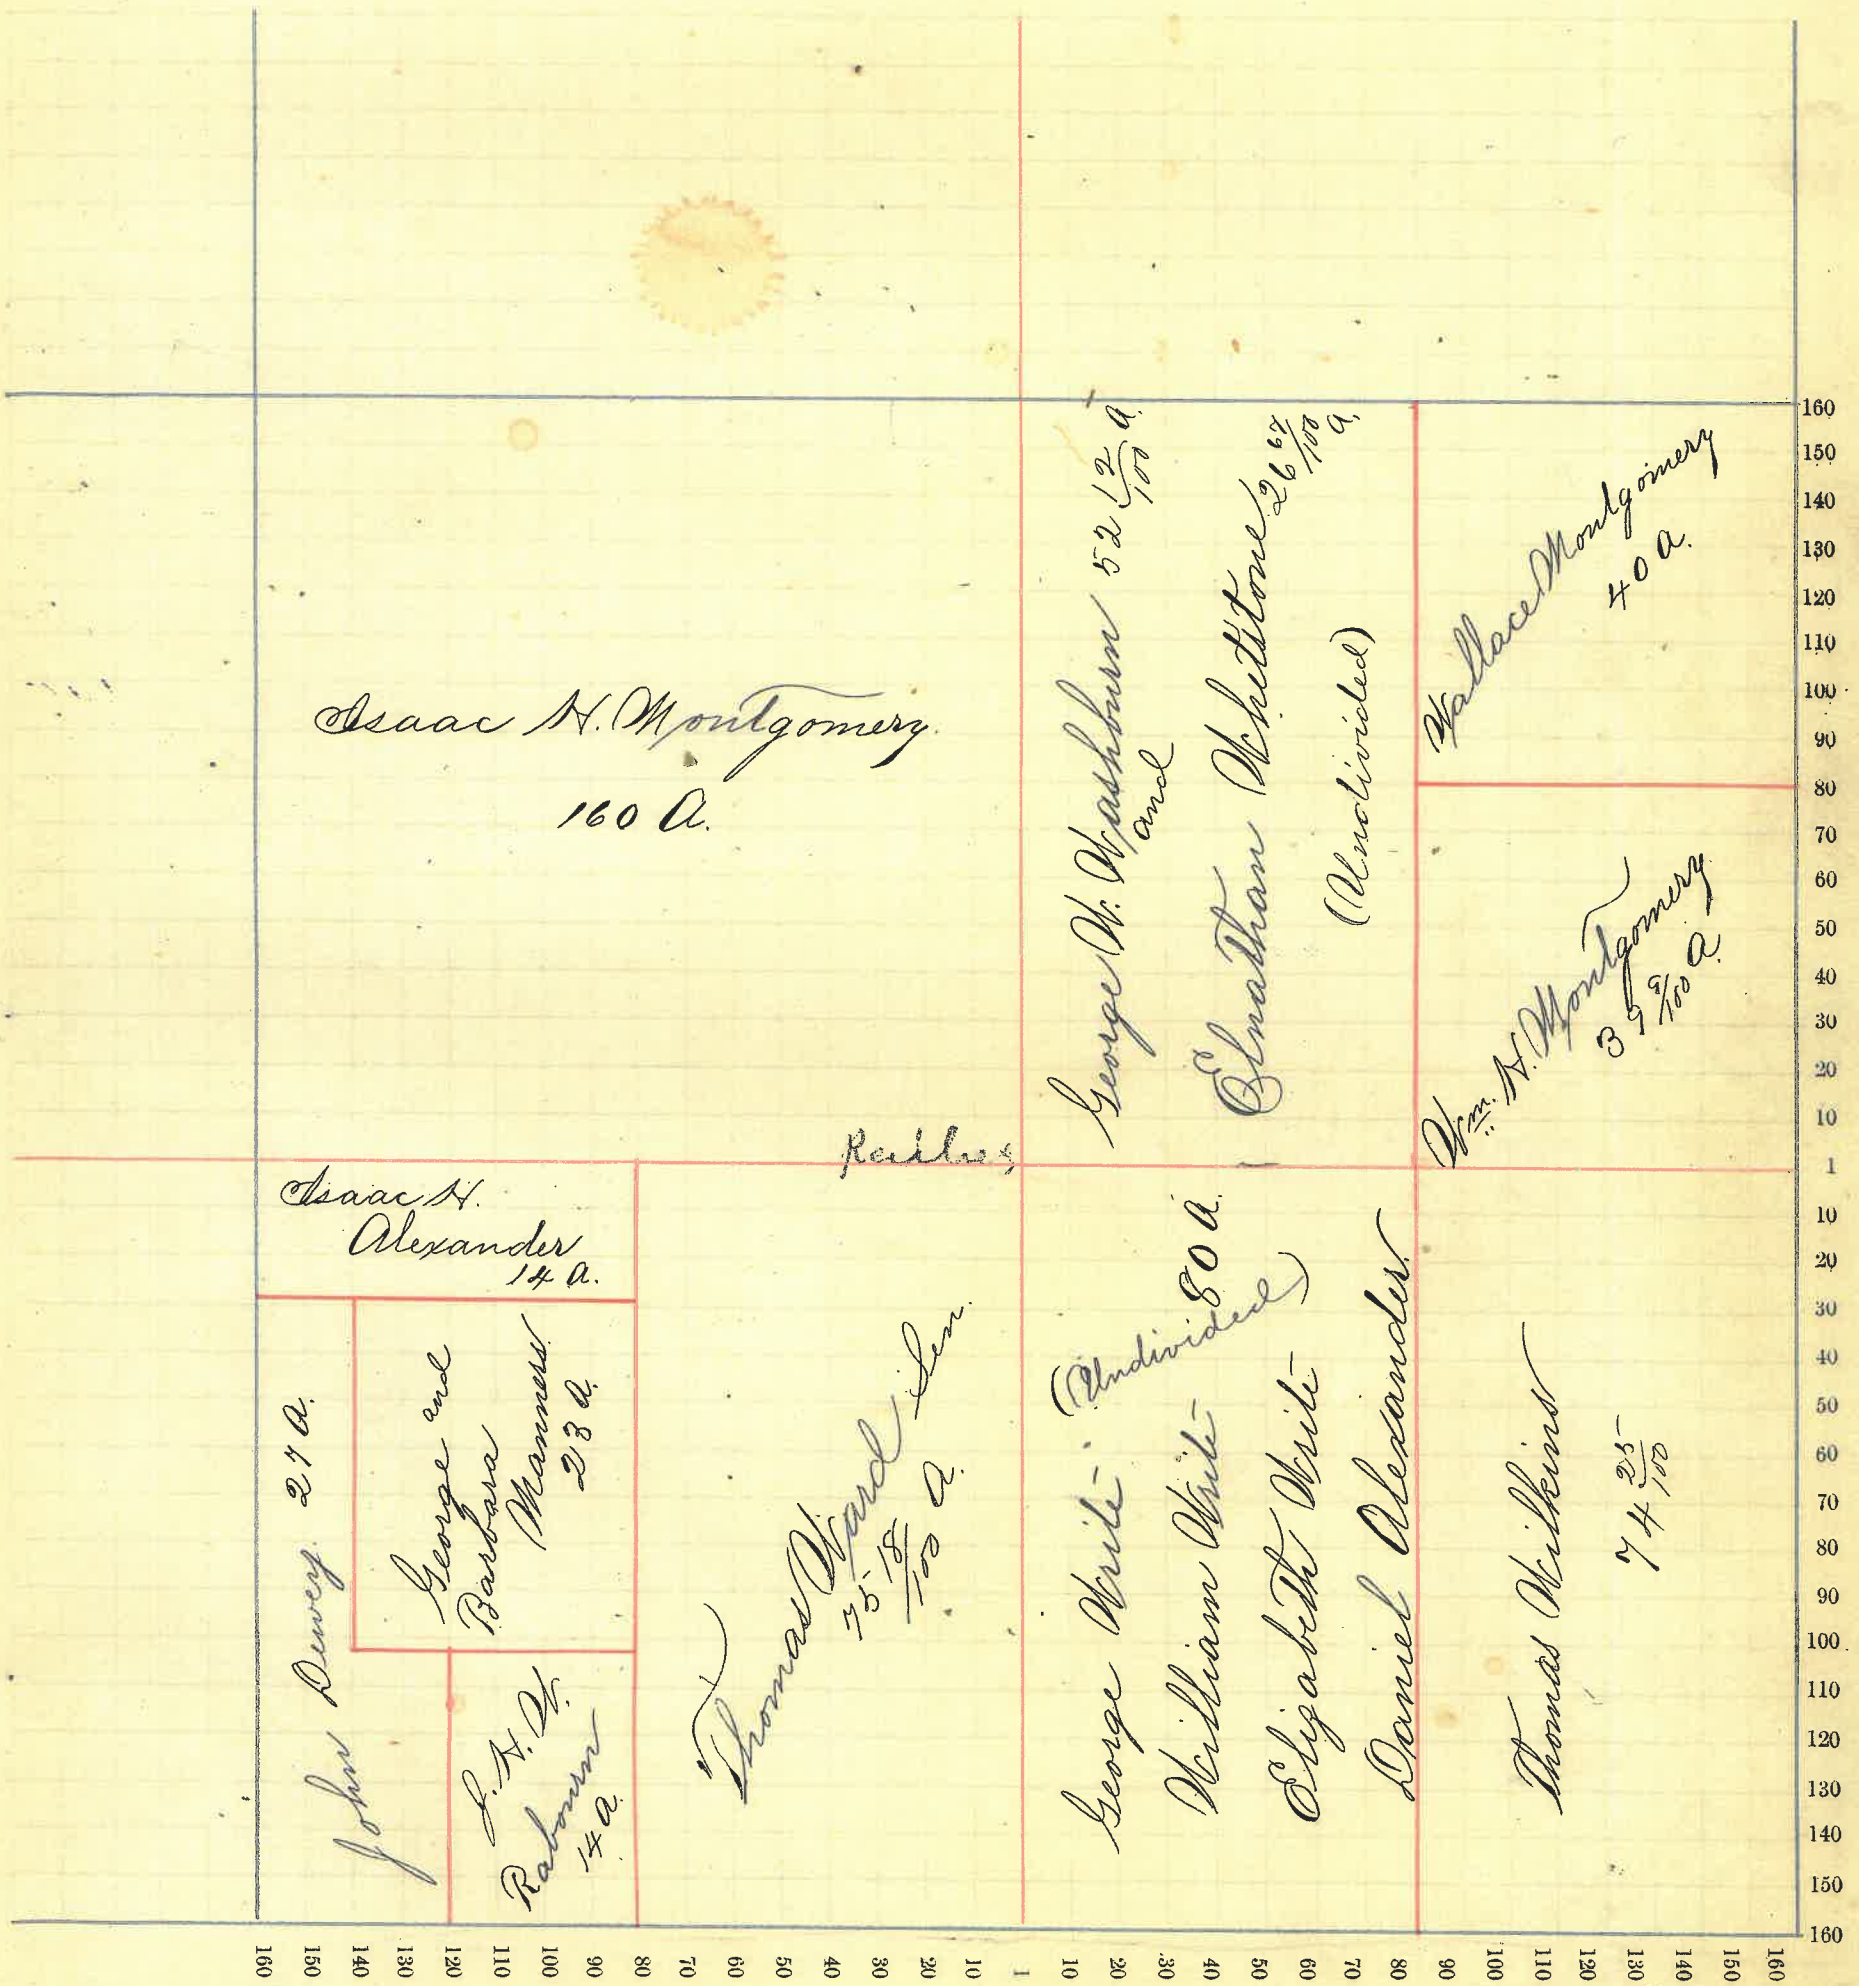 Isaac H. Montgomery.
160 A.
George W. Washburn 52 12/100 A.
and
Elnathan Whetstone 26 67/100 A.
(Undivided)
Wallace Montgomery
40 A.
Wm. H. Montgomery
A.
Isaac H.
Alexander
14 A.
John Dewey. 27 A.
George and
Barbara
Manness
23 A.
Rabourn
14 A.
Thomas Ward Sen.
75 18/100 A.
George Write
(Undivided)
80 A.
William Write
Elizabeth Write
Daniel Alexander
Thomas Wilkins
74 25/100
160
150
140
130
120
110
100
90
80
70
60
50
40
30
20
10
1
10
20
30
40
50
60
70
80
90
100
110
120
130
140
150
160
160 150 140 130 120 110 100 90 80 70 60 50 40 30 20 10 1 10 20 30 40 50 60 70 80 90 100 110 120 130 140 150 160